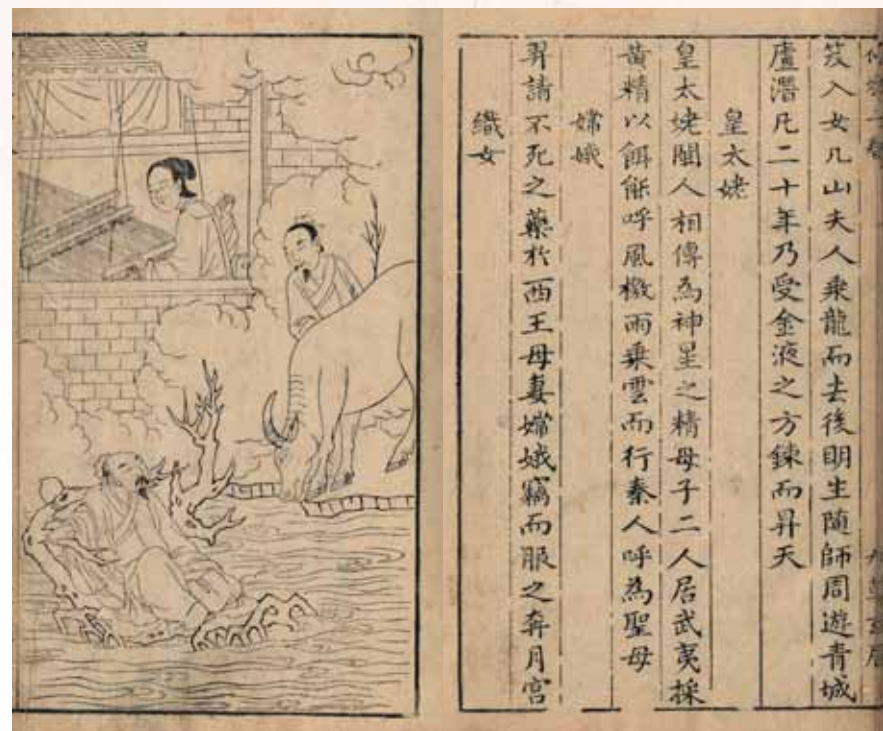 笈入女几山夫人乘龍而去後明生隨師周遊青城
廬潛凡二十年乃受金液之方鍊而昇天
皇太姥
皇太姥閩人相傳為神星之精母子二人居武夷採
黄精以餌能呼風檄雨乗雲而行秦人呼為聖母
嫦娥
羿請不死之藥於西王母妻嫦娥竊而服之奔月宫
織女